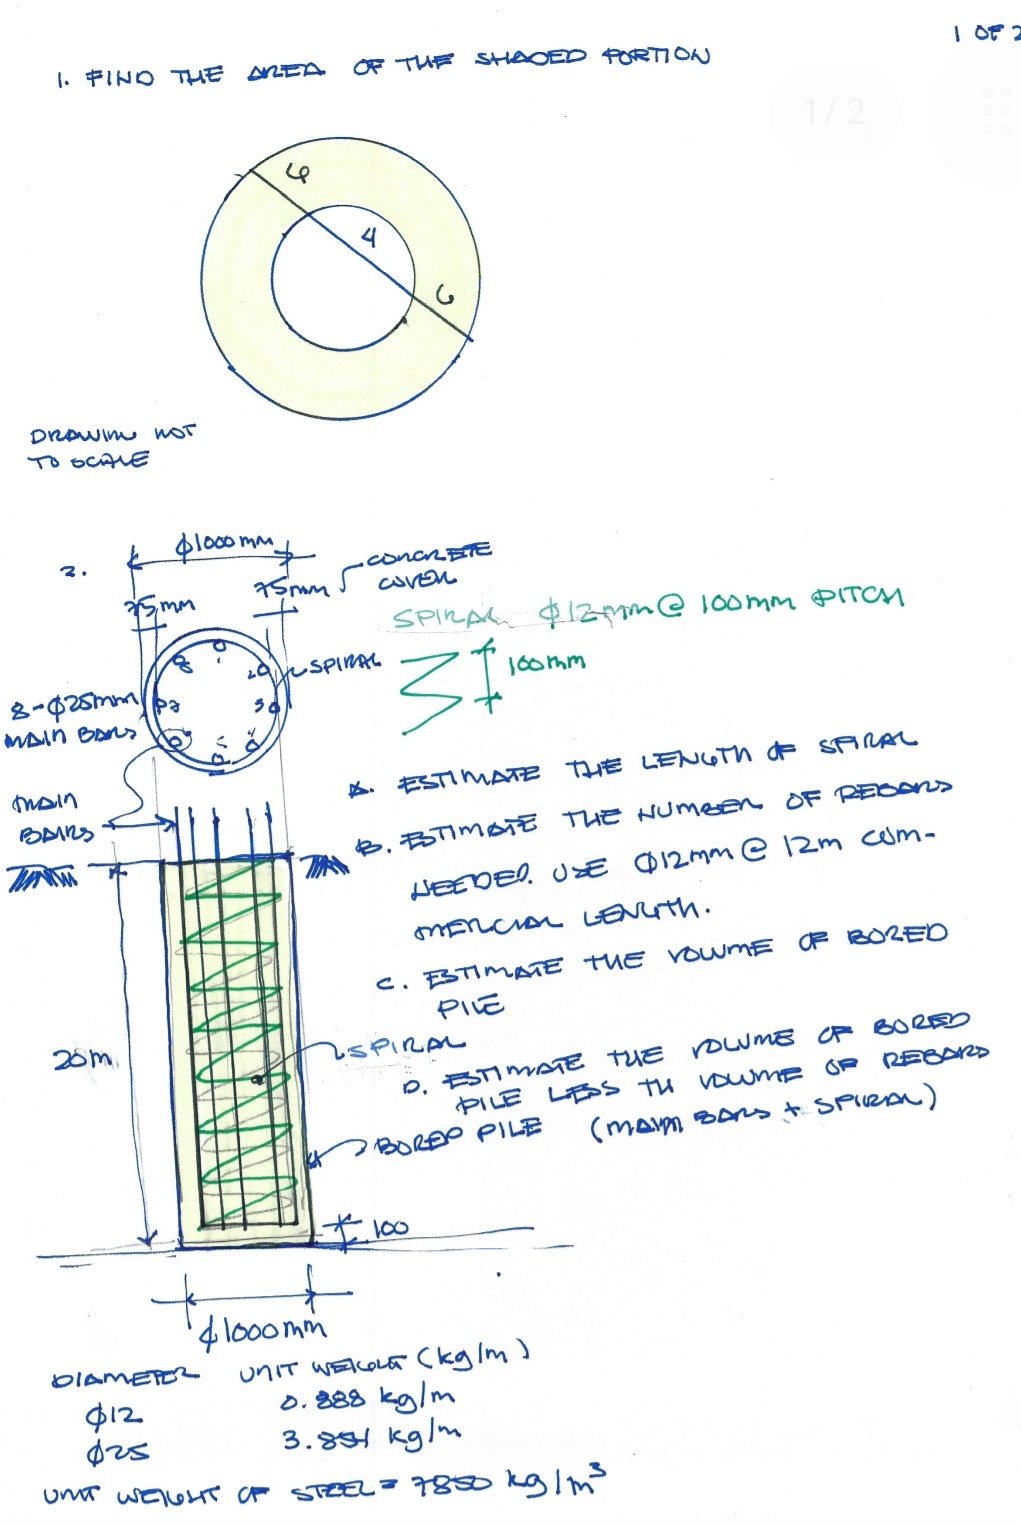 1 OF 2
1. FIND THE AREA OF THE SHADED PORTION
1/2
6
4
6
DRAWING NOT
TO SCALE
2.
φ1000mm
CONCRETE
COVER
75mm
75mm
SPIRAL φ12mm@100mm PITCH
100mm
SPIRAL
8-φ25mm
MAIN BARS
MAIN
BARS
A. ESTIMATE THE LENGTH OF SPIRAL
B. ESTIMATE THE NUMBER OF REBARS
NEEDED. USE φ12mm@12m COM-
MERCIAL LENGTH.
C. ESTIMATE THE VOLUME OF BORED
PILE
20m
SPIRAL
D. ESTIMATE THE VOLUME OF BORED
PILE LESS TH VOLUME OF REBARS
(MAIN BARS + SPIRAL)
BORED PILE
100
φ1000mm
DIAMETER UNIT WEIGHT (kg/m)
φ12 0.888 kg/m
φ25 3.851 kg/m
UNIT WEIGHT OF STEEL = 7850 kg/m³